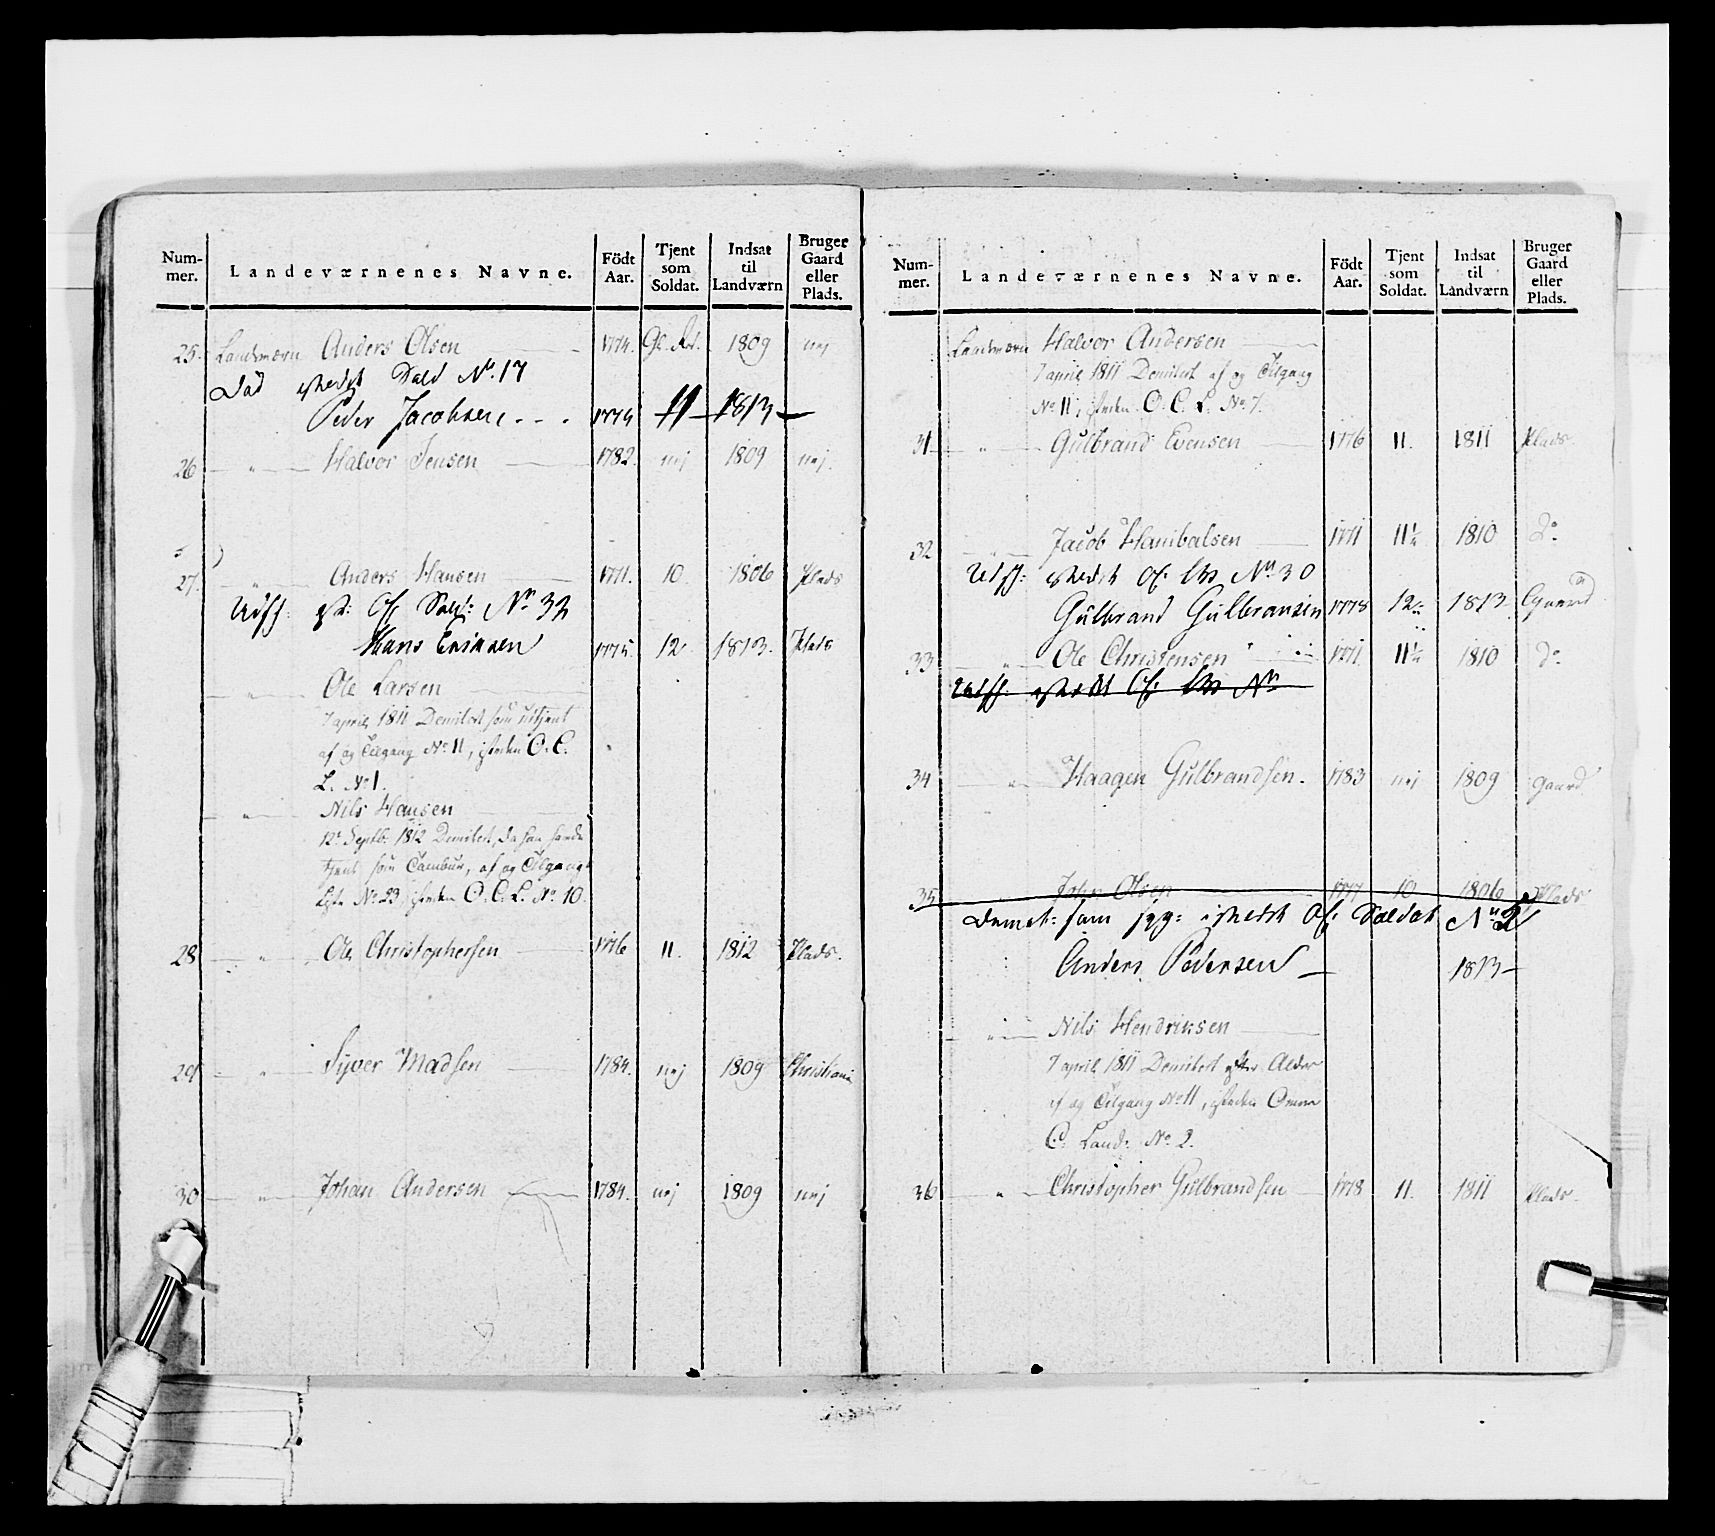 Num-
mer.
Landeværnenes Navne.
Födt
Aar.
Tjent
som
Soldat.
Indsat
til
Landværn
Bruger
Gaard
eller
Plads.
25. Landværn Anders Olsen 1774. 1809 nej
Död Sold No. 17
Peder Jacobsen 1774 11 1813
26 " Halvor Jensen 1782. nej 1809 nej.
27. " Anders Hansen 1771. 10. 1806 Plads
Udsk: No 33
Hans Eriksen 1775. 12. 1813. Plads
" Ole Larsen
7 april 1811 Demitert som utjent
af og Tilgang No 11, isteden O. C.
L. No 1.
" Nils Hansen
12te Septbr. 1812 Demitert, da han havde
tjent som Tambur, af og Tilgangs
Liste No 23, isteden O. C. L. No 10.
28 " Ole Christophersen 1776 11. 1812 Plads.
29 " Syver Madsen 1784. nej 1809 Christiania
30 " Johan Andersen 1784. nej 1809 nej
Num-
mer.
Landeværnenes Navne.
Födt
Aar.
Tjent
som
Soldat.
Indsat
til
Landværn
Bruger
Gaard
eller
Plads.
Landværn Halvor Andersen
7 april 1811 Demitert af og Tilgang
No 11, isteden O. C. L. No 7.
31 " Gulbrand Evensen 1776 11. 1811 Plads.
32 " Jacob Hanibalsen 1771 11½ 1810 do
Udsk: No 30
Gulbrand Gulbransen 1778 12 1813 Gaard
33 " Ole Christensen 1771. 11½ 1810 do
34 " Haagen Gulbrandsen. 1783 nej 1809 gaard.
35 John Olsen 1777 10 1806 Plads
Demet: som Soldat No 21
Anders Pedersen 1813
" Nils Hendriksen
7 april 1811 Demitert efter Alder
af og Tilgang No 11, isteden
C: Land: No 2.
36 " Christopher Gulbrandsen 1778 11. 1811 Plads.